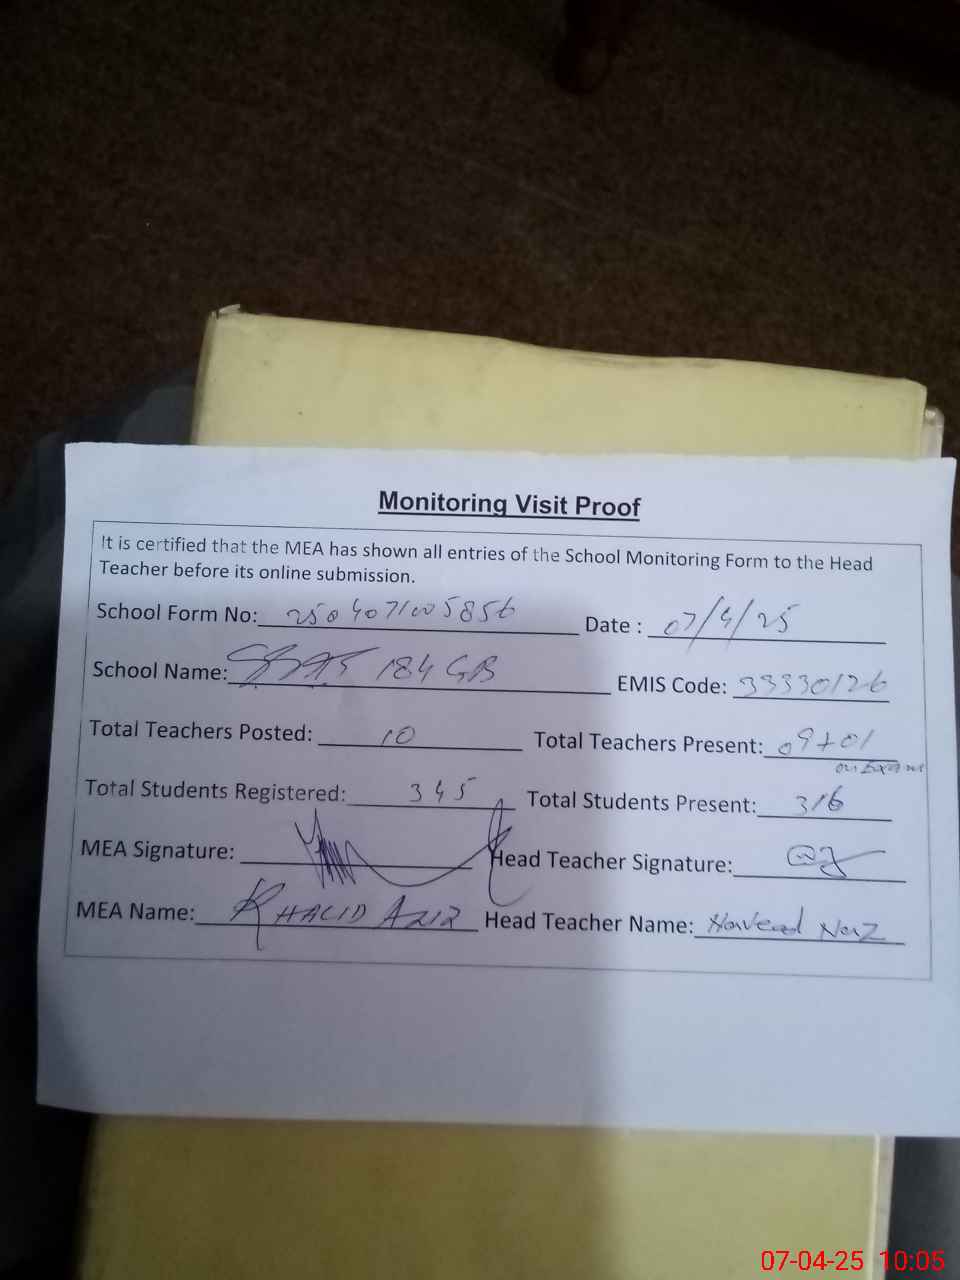 Monitoring Visit Proof
It is certified that the MEA has shown all entries of the School Monitoring Form to the Head
Teacher before its online submission.
School Form No: 2504071005856 Date : 07/4/25
School Name: 184 GB EMIS Code: 33330126
Total Teachers Posted: 10 Total Teachers Present: 09+01
on Exam
Total Students Registered: 345 Total Students Present: 316
MEA Signature: Head Teacher Signature:
MEA Name: KHALID AZIZ Head Teacher Name: Naveed
07-04-25 10:05